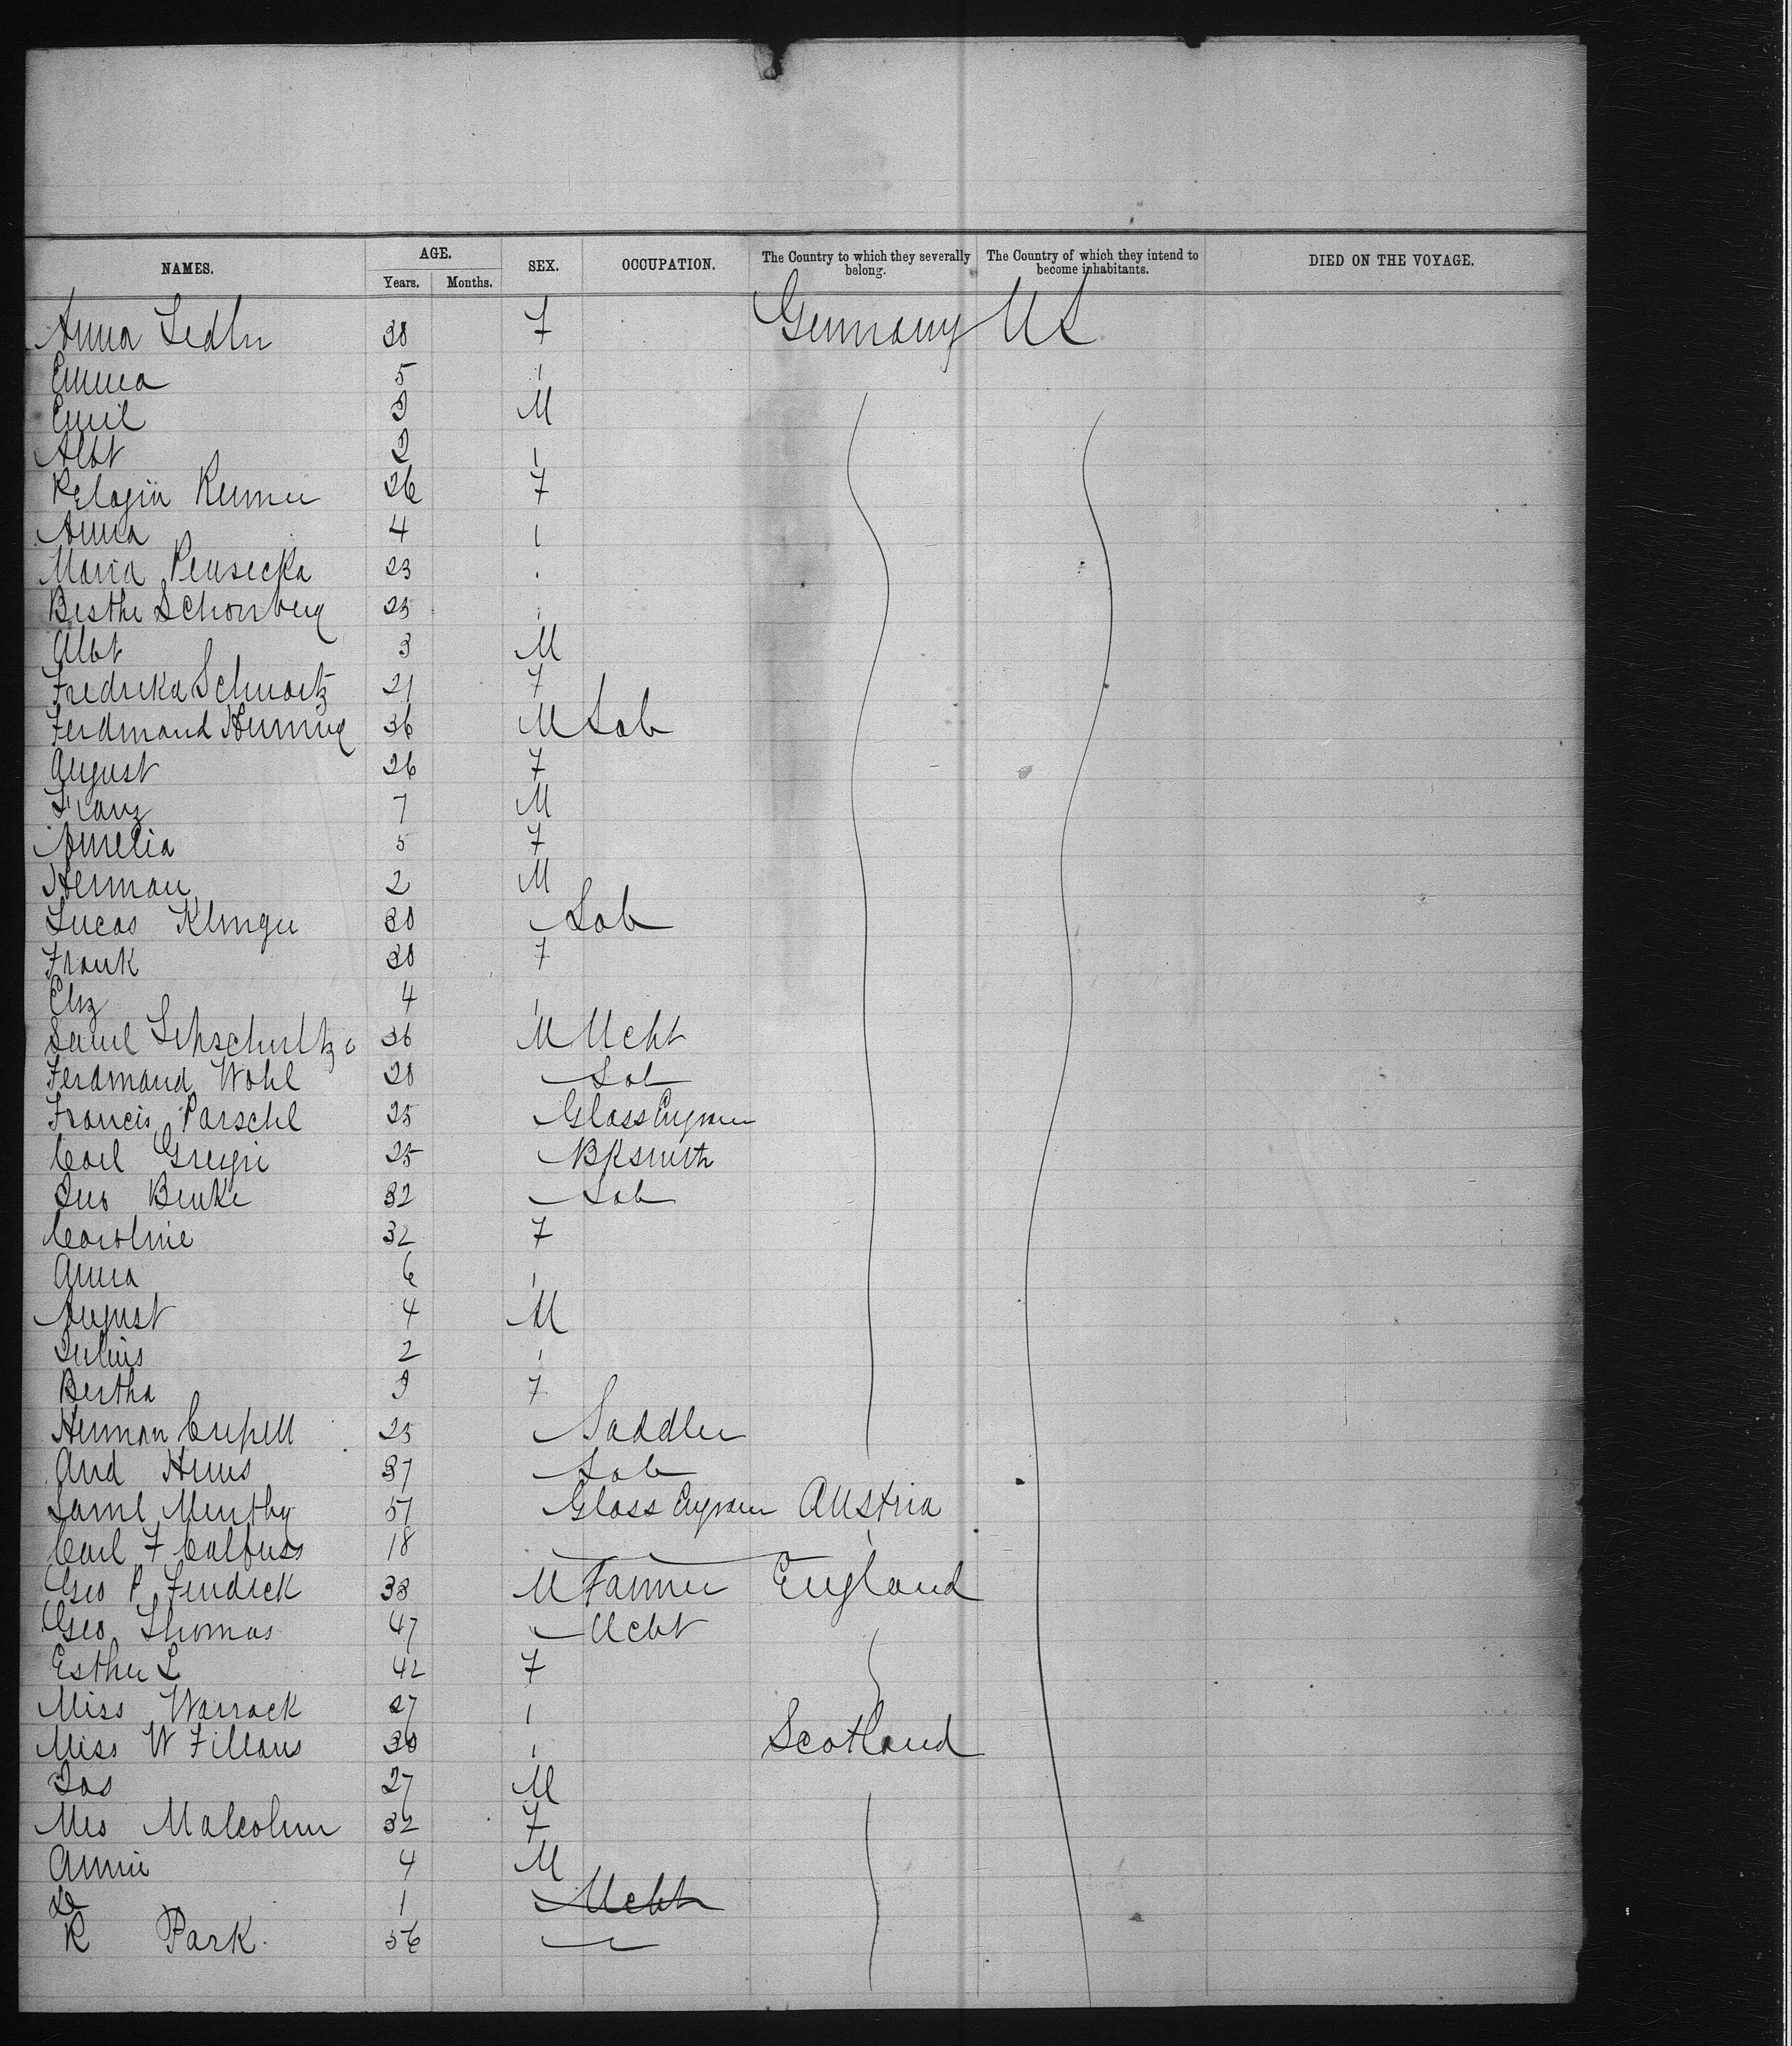 NAMES. AGE. SEX. OCCUPATION. The Country to which they severally belong. The Country of which they intend to become inhabitants. DIED ON THE VOYAGE.
Years. Months.
Anna 30 F Germany US
Emma 5 "
Emil 3 M
Albt 2 "
26 F
Anna 4 "
Maria 23 "
Berthe Schonberg 25 "
Albt 3 M
Fredrika Schwartz 21 F
Ferdinand Hennig 36 M Lab
August 26 F
Franz 7 M
Amelia 5 F
Herman 2 M
Lucas Klinger 30 " Lab
Frank 30 F
Eliz 4 "
Saml 36 M Mcht
Ferdinand Wohl 20 " Lab
Francis Parschl 25 " Glass Engraver
Carl 25 " Bksmith
Jno Benke 32 " Lab
Caroline 32 F
Anna 6 "
August 4 M
Julius 2 "
Bertha 9 F
Herman 25 " Saddler
And 37 " Lab
Saml 51 Glass Engraver Austria
Carl F 18
Geo P Fendick 38 M Farmer England
Geo Thomas 47 " Mcht
Esther L 42 F
Miss Warrack 27 "
Miss W Fillans 30 " Scotland
Jas 27 M
Mrs Malcolm 32 F
Annie 4 M
Do 1 " Mcht
R Park. 56 "